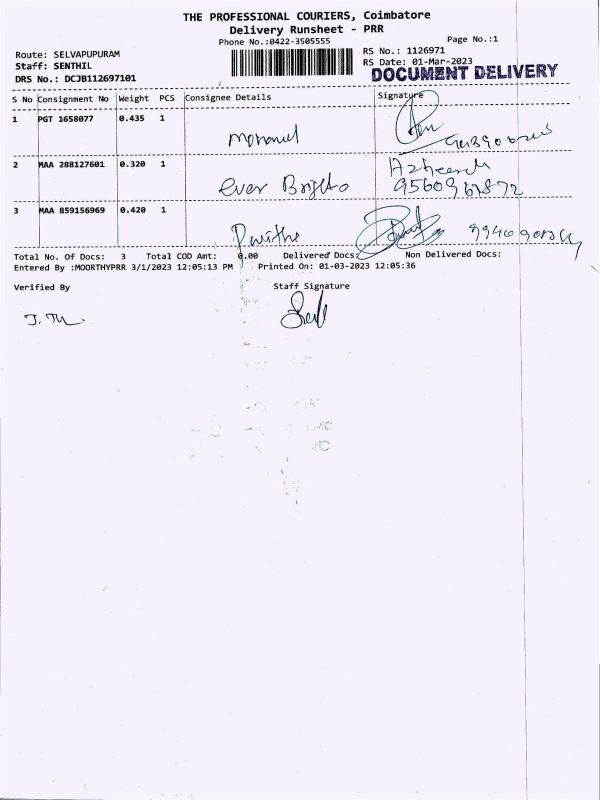 THE PROFESSIONAL COURIERS, Coimbatore
Delivery Runsheet - PRR
Phone No.:0422-3505555
Page No.:1
Route: SELVAPUPURAM
RS No.: 1126971
Staff: SENTHIL
RS Date: 01-Mar-2023
DRS No.: DCJB112697101
DOCUMENT DELIVERY
S No Consignment No Weight PCS Consignee Details Signature
1 PGT 1658077 0.435 1
2 MAA 288127601 0.320 1
ever
3 MAA 859156969 0.420 1
Total No. Of Docs: 3 Total COD Amt: 0.00 Delivered Docs: Non Delivered Docs:
Entered By :MOORTHYPRR 3/1/2023 12:05:13 PM Printed On: 01-03-2023 12:05:36
Verified By Staff Signature